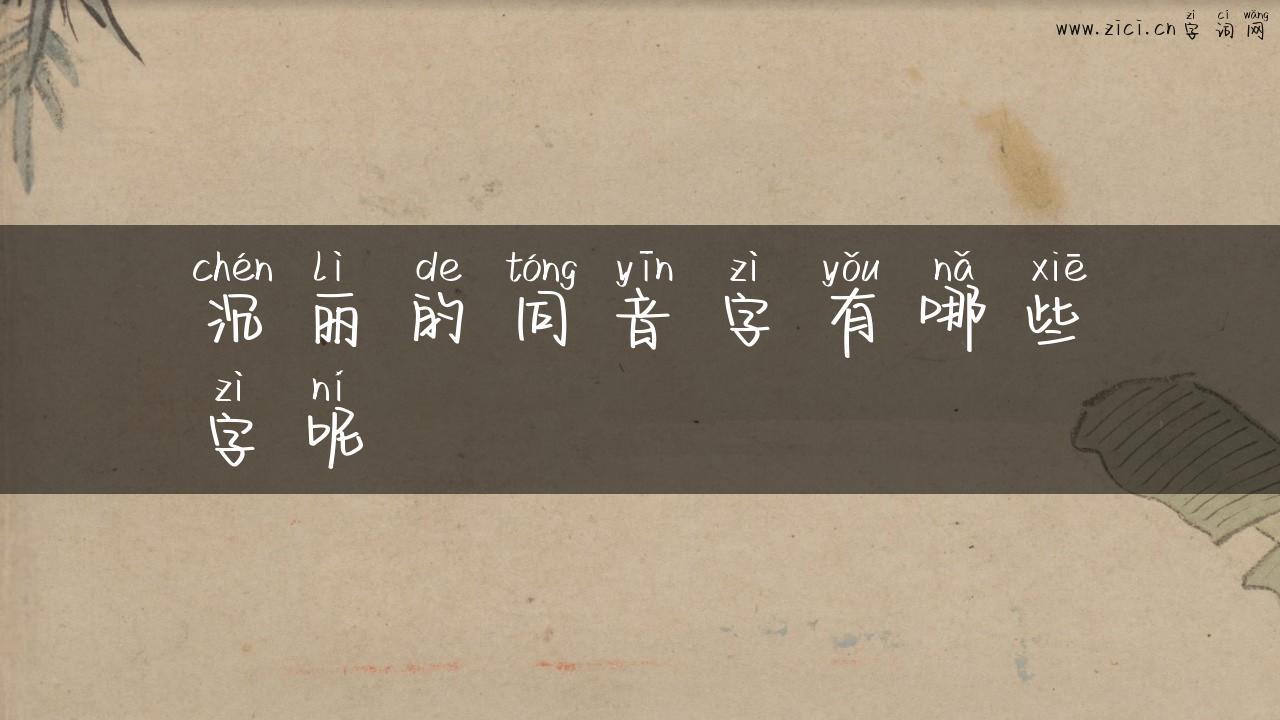 zì cí wǎng
www.zici.cn 字词网
chén lì de tóng yīn zì yǒu nǎ xiē
沉丽的同音字有哪些
zì ní
字呢